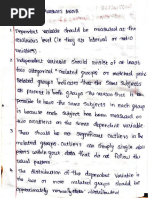 1. Dependent variable should be measured at the
continuous level (ie they are interval or ratio
variables).
2. Independent variable should consist of at least
two categorical, related groups or matched pairs
Related groups indicates that the same subjects
are present in both groups. The reason that it is
possible to have the same subjects in each group
is because each subject has been measured on
two occasions on the same dependent variable
3. There should be no significant outliers in the
related groups. outliers can simply single
points within your data that do not follow the
usual pattern.
4. The distribution of the dependent variable in
the two or more related groups should be
approximately normally distributed